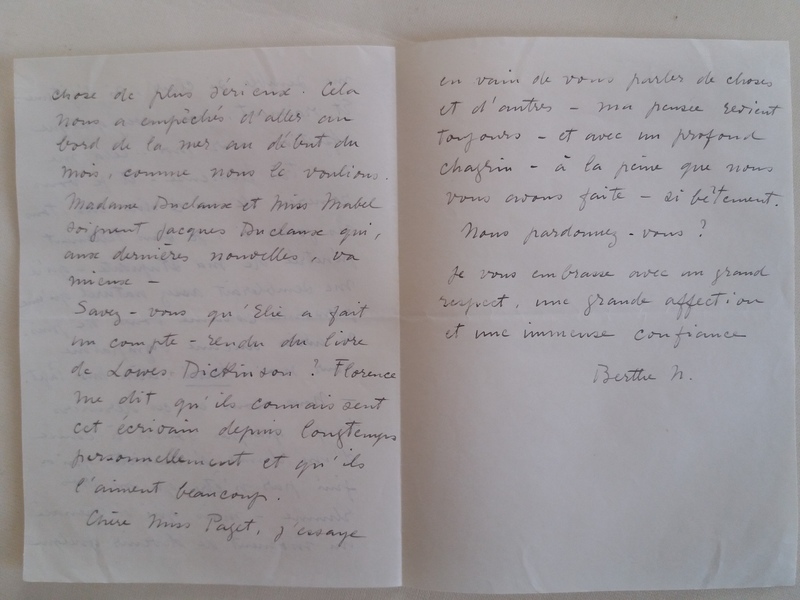 chose de plus sérieux. Cela
nous a empêchés d'aller au
bord de la mer au début du
mois, comme nous le voulions.
Madame Duclaux et Miss Mabel
soignent Jacques Duclaux qui,
aux dernières nouvelles, va
mieux –
Savez-vous qu'Elie a fait
un compte-rendu du livre
de Lowes Dickinson ? Florence
me dit qu'ils connaissent
cet écrivain depuis longtemps
personnellement et qu'ils
l'aiment beaucoup.
Chère Miss Paget, j'essaye
en vain de vous parler de choses
et d'autres – ma pensée revient
toujours – et avec un profond
chagrin – à la peine que nous
vous avons faite – si bêtement.
Nous pardonnez-vous ?
Je vous embrasse avec un grand
respect, une grande affection
et une immense confiance
Berthe N.